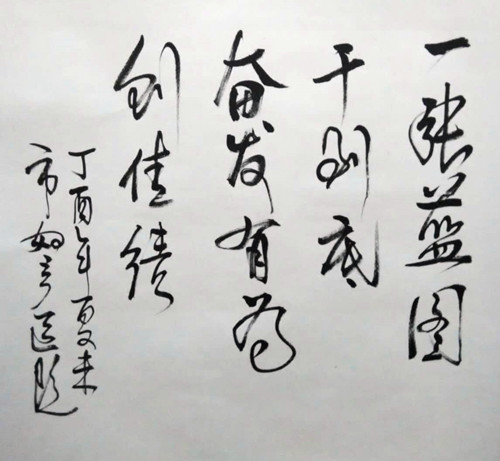 一张蓝图
干到底
奋发有为
创佳绩
丁酉年夏末
市如